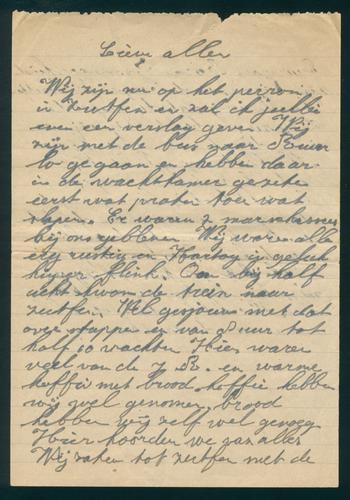 Lieve allen
Wij zijn nu op het perron
in Zutfen en zal ik jullie
even een verslag geven. Wij
zijn met de bus naar
lo gegaan en hebben daar
in de wachtkamer gezeten
eerst wat praten toen wat
slapen. Er waren 2 marechaussees
bij ons gebleven. Wij waren alle
erg rustig en Hartog is gelukkig
flink. Om bij half
acht kwam de trein naar
zutfen. Wel gejouwd met dat
overstappen en van 8 uur tot
half 10 wachten. Hier waren
veel van de J. R. en warme
koffie met brood. koffie hebben
wij wel genomen, brood
hebben wij zelf wel genoeg.
Hier hoorden we gaz alles
Wij zaten tot zutfen met de